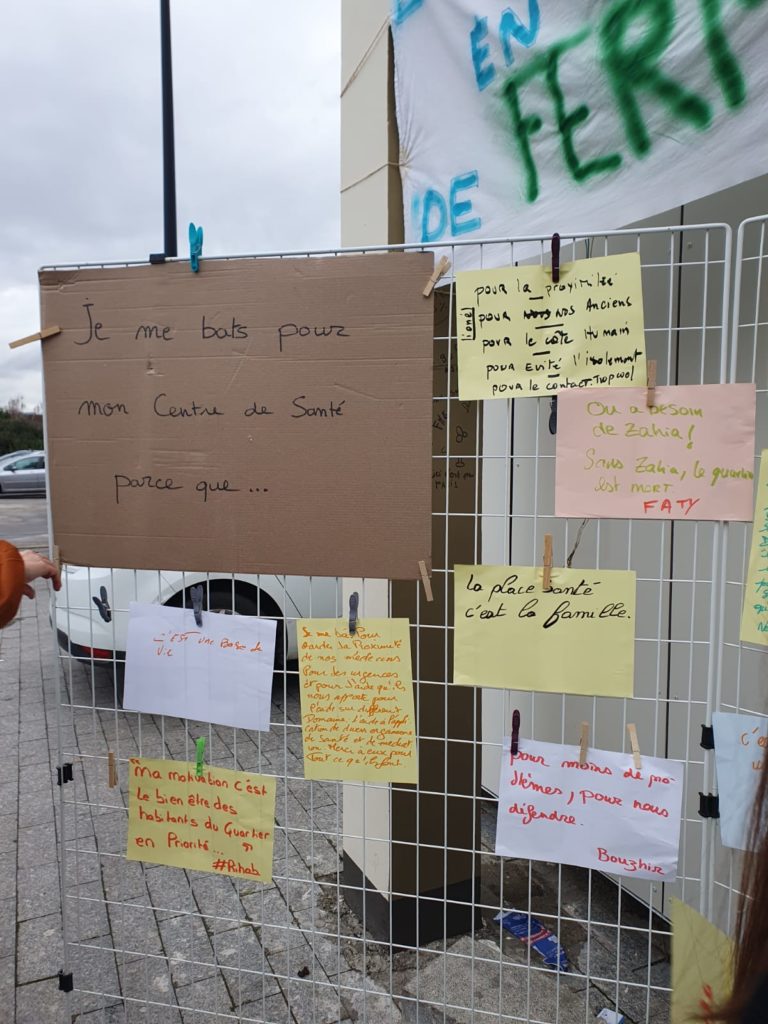 EN
FER
DE
Je me bats pour
mon Centre de Santé
parce que...
pour la proximité
pour nos Anciens
pour le côté Humain
pour Evité l'isolement
pour le contact. Trop cool
On a besoin
de Zahia!
Sans Zahia, le quartier
est mort
FATY
La place santé
c'est la famille.
C'EST UNE Base de
Vie
Je me bat Pour
garder la Proximité
de nos médecins
Pour des urgences
et pour l'aide qu'ils
nous apporte pour
l'aide sur différent
Domaine, l'aide à l'appli
cation de divers organisme
de santé et de médical
un Merci à eux pour
Tout ce qu'ils font
"Ma motivation c'est
Le bien être des
habitants du Quartier
en Priorité..."
#Rihab
pour moins de pro-
blèmes, pour nous
défendre.
Bouzhir
c'e